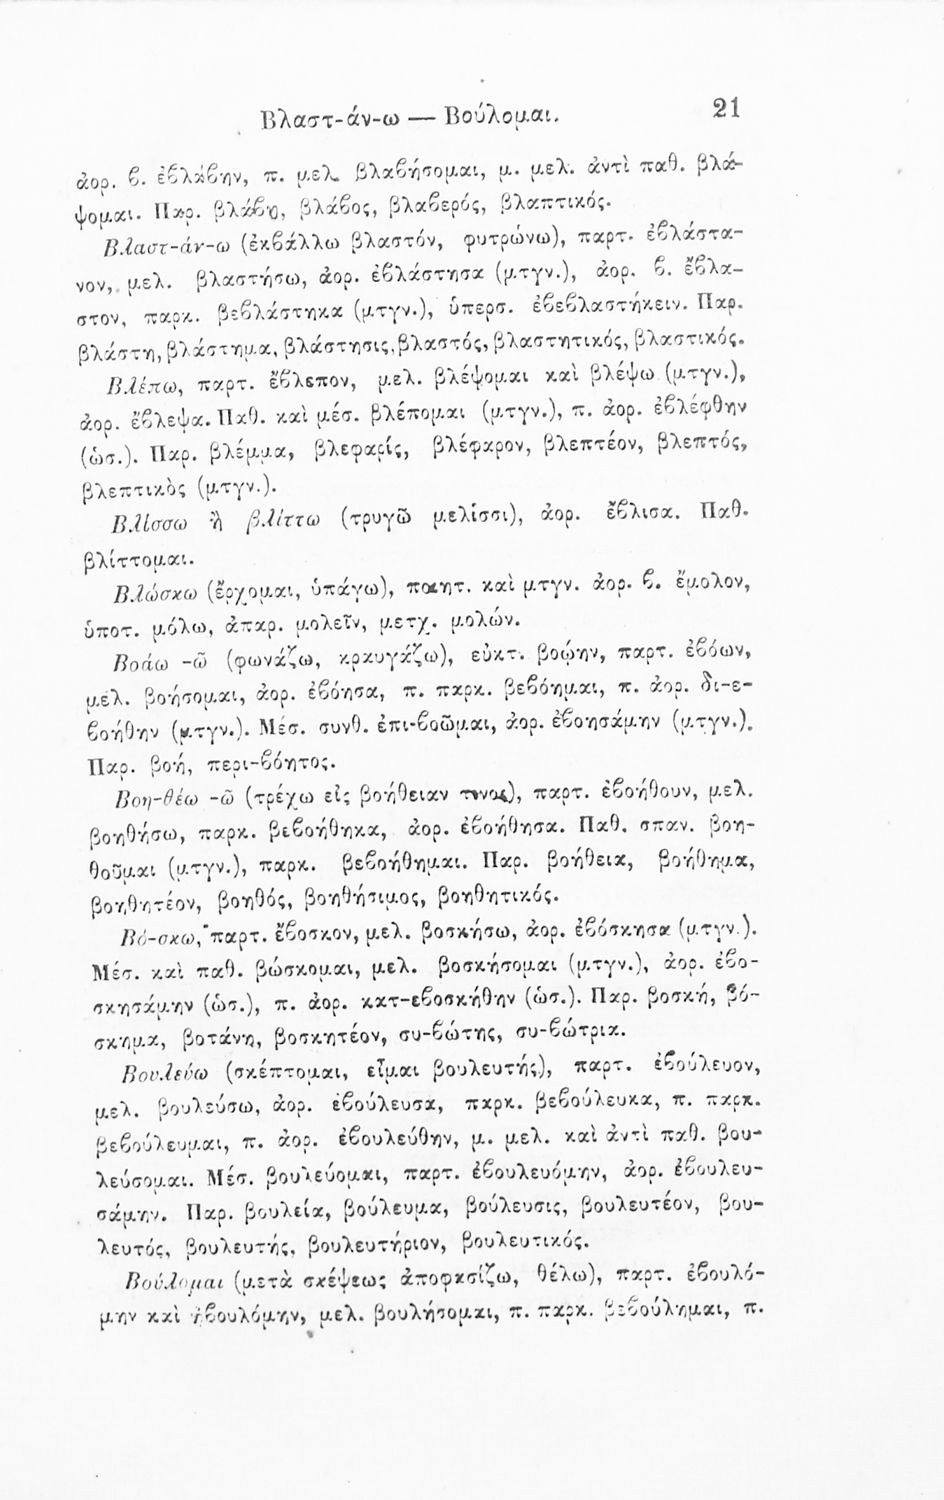 Βλαστ-άν-ω — Βούλομαι. 21
ἀορ. β. ἐβλάβην, π. μελ. βλαβήσομαι, μ. μελ. ἀντὶ παθ. βλά-
ψομαι. Παρ. βλάβη, βλάβος, βλαβερός, βλαπτικός.
Βλαστ-άν-ω (ἐκβάλλω βλαστόν, φυτρώνω), παρτ. ἐβλάστα-
νον, μελ. βλαστήσω, ἀορ. ἐβλάστησα (μτγν.), ἀορ. β. ἔβλα-
στον, παρκ. βεβλάστηκα (μτγν.), ὑπερσ. ἐβεβλαστήκειν. Παρ.
βλάστη, βλάστημα, βλάστησις, βλαστός, βλαστητικός, βλαστικός.
Βλέπω, παρτ. ἔβλεπον, μελ. βλέψομαι καὶ βλέψω (μτγν.),
ἀορ. ἔβλεψα. Παθ. καὶ μέσ. βλέπομαι (μτγν.), π. ἀορ. ἐβλέφθην
(ὡσ.). Παρ. βλέμμα, βλεφαρίς, βλέφαρον, βλεπτέον, βλεπτός,
βλεπτικὸς (μτγν.).
Βλίσσω ἢ βλίττω (τρυγῶ μελίσσι), ἀορ. ἔβλισα. Παθ.
βλίττομαι.
Βλώσκω (ἔρχομαι, ὑπάγω), ποιητ. καὶ μτγν. ἀορ. β. ἔμολον,
ὑποτ. μόλω, ἀπαρ. μολεῖν, μετχ. μολών.
Βοάω -ῶ (φωνάζω, κραυγάζω), εὐκτ. βοῴην, παρτ. ἐβόων,
μέλ. βοήσομαι, ἀορ. ἐβόησα, π. παρκ. βεβόημαι, π. ἀορ. δι-ε-
βοήθην (μτγν.). Μέσ. συνθ. ἐπι-βοῶμαι, ἀορ. ἐβοησάμην (μτγν.).
Παρ. βοή, περι-βόητος.
Βοη-θέω -ῶ (τρέχω εἰς βοήθειαν τινος), παρτ. ἐβοήθουν, μελ.
βοηθήσω, παρκ. βεβοήθηκα, ἀορ. ἐβοήθησα. Παθ. σπαν. βοη-
θοῦμαι (μτγν.), παρκ. βεβοήθημαι. Παρ. βοήθεια, βοήθημα,
βοηθητέον, βοηθός, βοηθήσιμος, βοηθητικός.
Βό-σκω, παρτ. ἔβοσκον, μελ. βοσκήσω, ἀορ. ἐβόσκησα (μτγν.).
Μέσ. καὶ παθ. βώσκομαι, μελ. βοσκήσομαι (μτγν.), ἀορ. ἐβο-
σκησάμην (ὡσ.), π. ἀορ. κατ-εβοσκήθην (ὡσ.). Παρ. βοσκή, βό-
σκημα, βοτάνη, βοσκητέον, συ-βώτης, συ-βώτρια.
Βουλεύω (σκέπτομαι, εἶμαι βουλευτής), παρτ. ἐβούλευον,
μελ. βουλεύσω, ἀορ. ἐβούλευσα, παρκ. βεβούλευκα, π. παρκ.
βεβούλευμαι, π. ἀορ. ἐβουλεύθην, μ. μελ. καὶ ἀντὶ παθ. βου-
λεύσομαι. Μέσ. βουλεύομαι, παρτ. ἐβουλευόμην, ἀορ. ἐβουλευ-
σάμην. Παρ. βουλεία, βούλευμα, βούλευσις, βουλευτέον, βου-
λευτός, βουλευτής, βουλευτήριον, βουλευτικός.
Βούλομαι (μετὰ σκέψεως ἀποφασίζω, θέλω), παρτ. ἐβουλό-
μην καὶ ἠβουλόμην, μελ. βουλήσομαι, π. παρκ. βεβούλημαι, π.